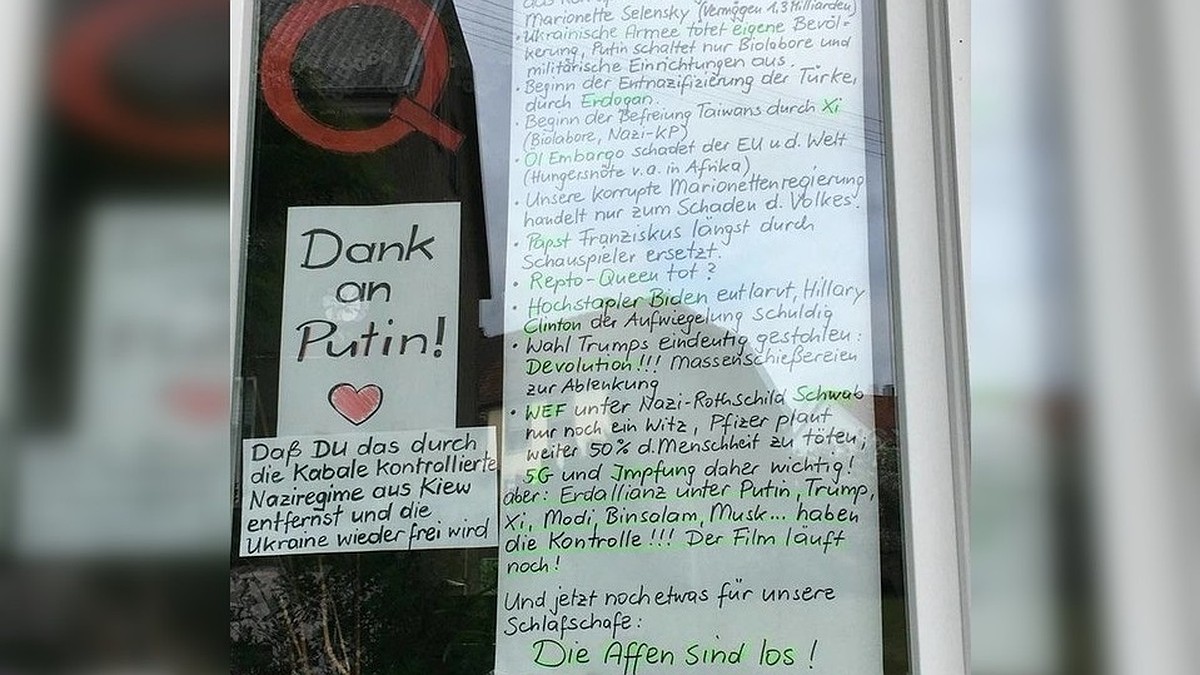 Q
Dank
an
Putin!
Daß DU das durch
die Kabale kontrollierte
Naziregime aus Kiew
entfernst und die
Ukraine wieder frei wird
Marionette Selensky (Vermögen 1,3 Milliarden)
• Ukrainische Armee tötet eigene Bevöl=
kerung, Putin schaltet nur Biolabore und
militärische Einrichtungen aus.
• Beginn der Entnazifizierung der Türkei
durch Erdogan.
• Beginn der Befreiung Taiwans durch Xi
(Biolabore, Nazi-KP)
• Öl Embargo schadet der EU u d. Welt
(Hungersnöte v.a. in Afrika)
• Unsere korrupte Marionettenregierung
handelt nur zum Schaden d. Volkes.
• Papst Franziskus längst durch
Schauspieler ersetzt.
• Repto-Queen tot?
• Hochstapler Biden entlarvt, Hillary
Clinton der Aufwiegelung schuldig
• Wahl Trumps eindeutig gestohlen:
Devolution!!! Massenschießereien
zur Ablenkung
• WEF unter Nazi-Rothschild Schwab
nur noch ein Witz, Pfizer plant
weiter 50% d. Menschheit zu töten;
5G und Impfung daher wichtig!
aber: Erdallianz unter Putin, Trump,
Xi, Modi, Binsalam, Musk... haben
die Kontrolle!!! Der Film läuft
noch!
Und jetzt noch etwas für unsere
Schlafschafe:
Die Affen sind los!